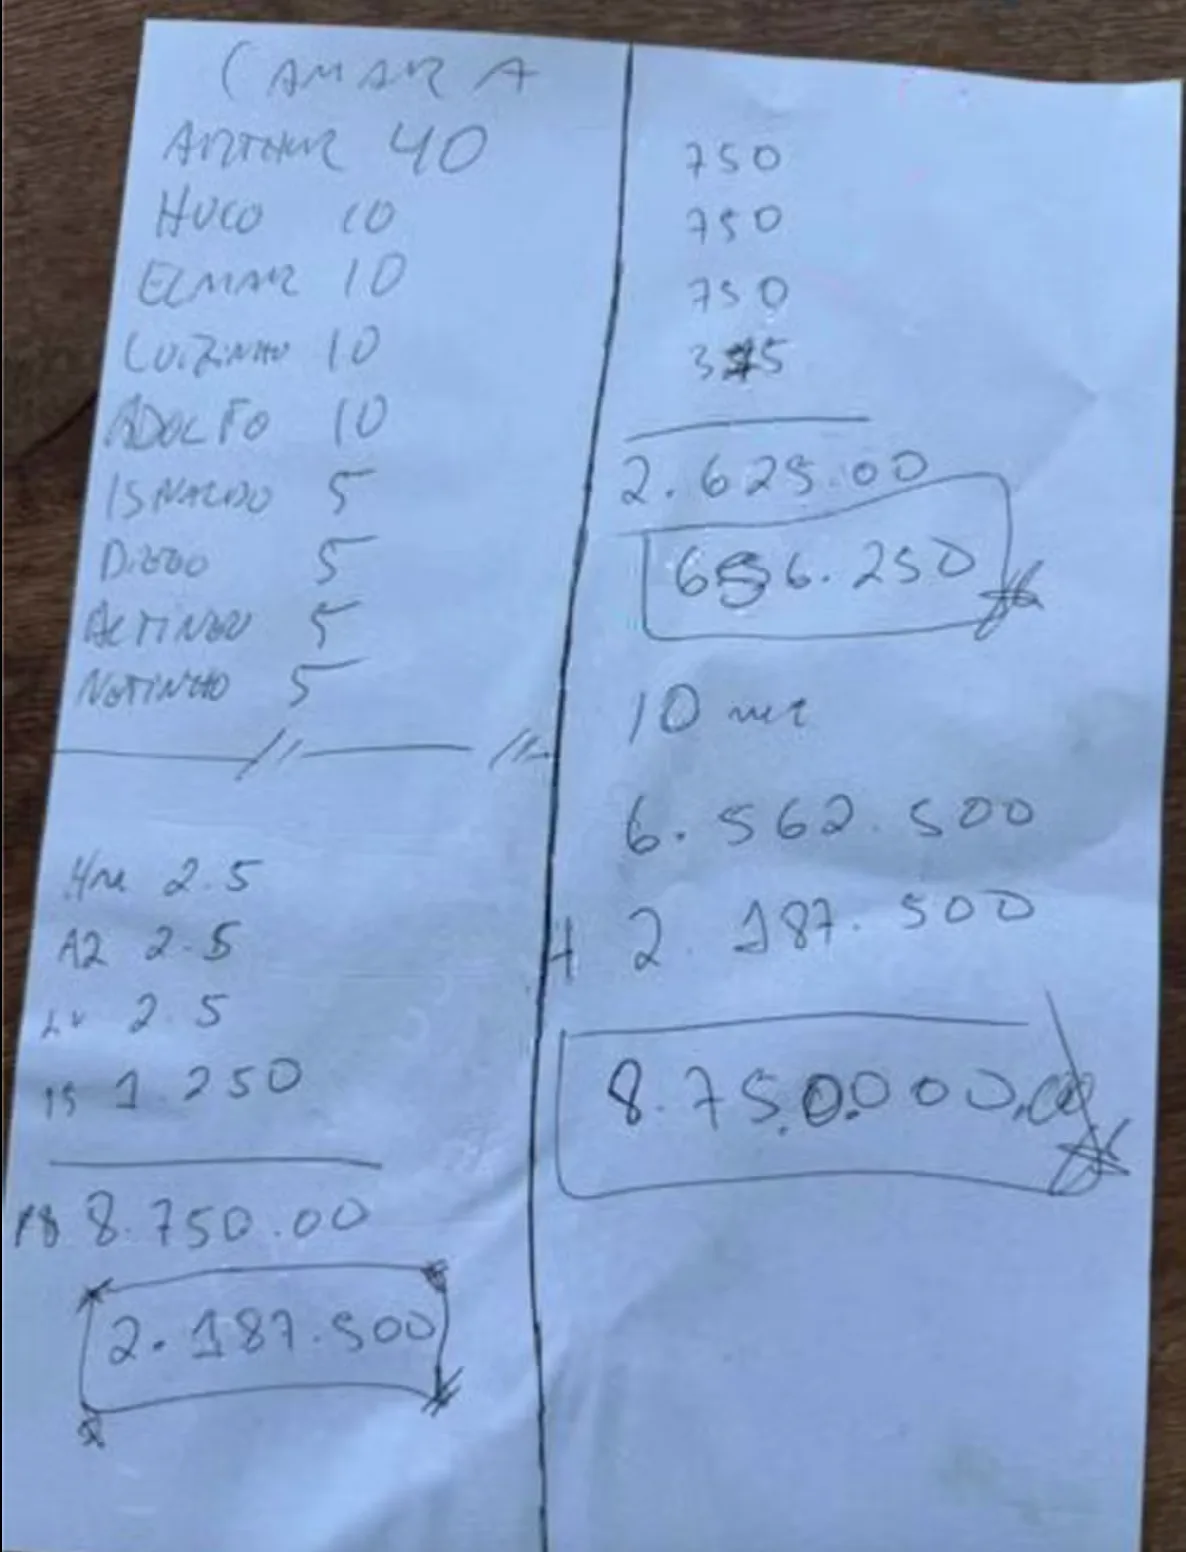 CAMARA
ARTHUR 40
HUGO 10
ELMAR 10
LUIZINHO 10
ADOLFO 10
ISNALDO 5
DIEGO 5
ALTINEU 5
NETINHO 5
HM 2.5
A2 2.5
LU 2.5
IS 1 250
8.750.00
2.187.500
750
750
750
375
2.625.00
656.250
10
6.562.500
2.187.500
8.750.000,00